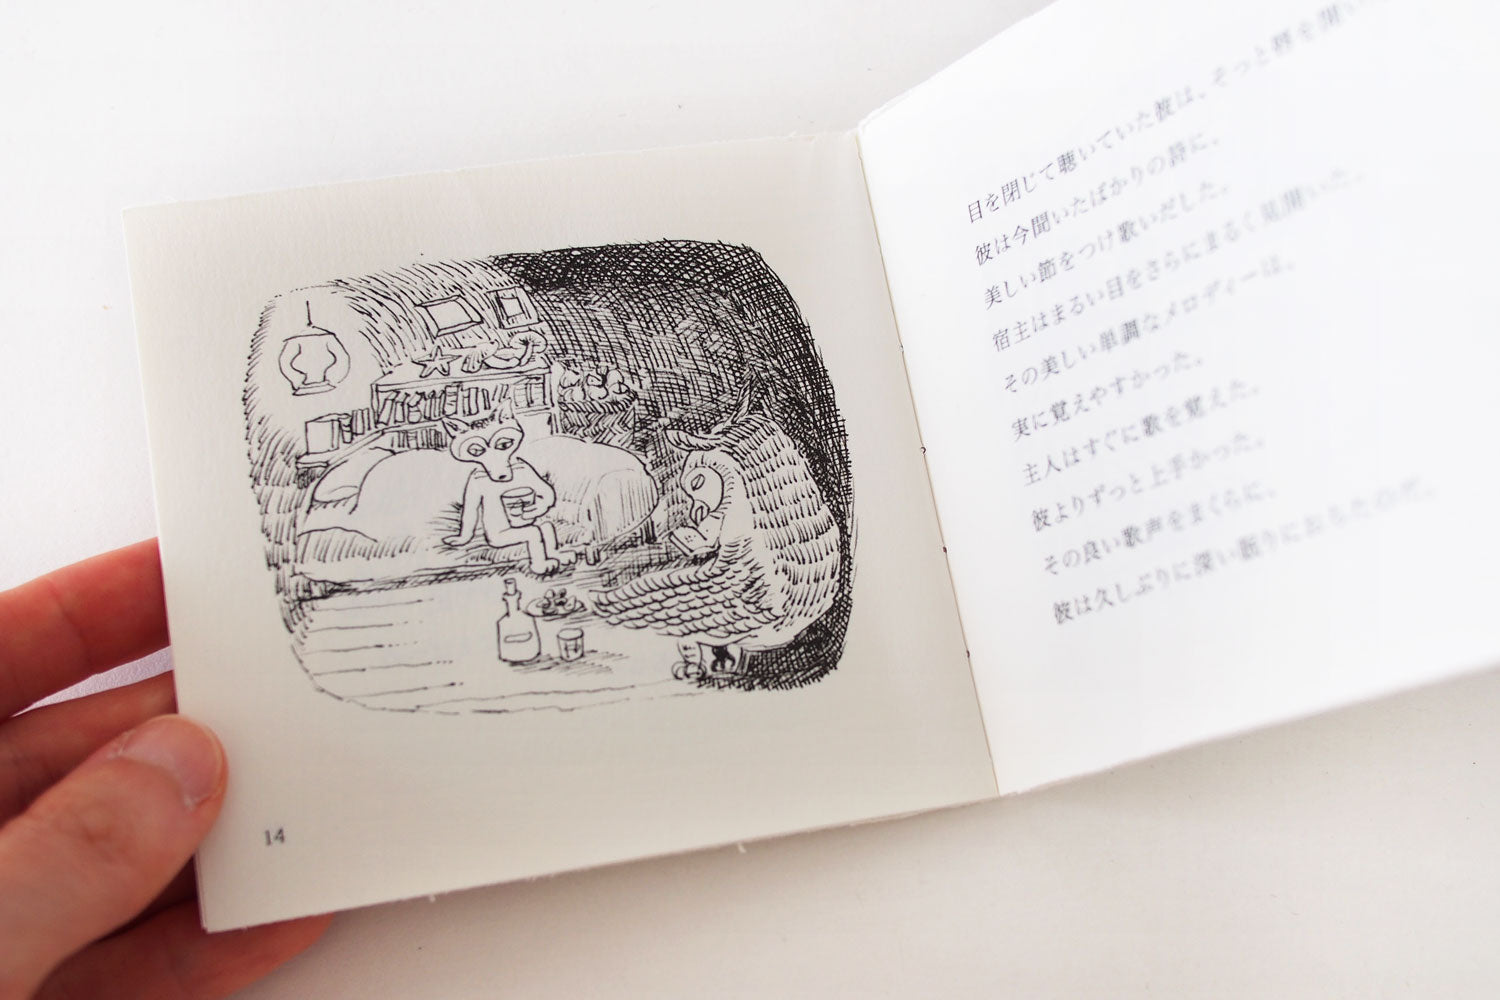 14
目を閉じて聴いていた彼は、そっと唇を開い
彼は今聞いたばかりの詩に、
美しい節をつけ歌いだした。
宿主はまるい目をさらにまるく見開いた。
その美しい単調なメロディーは、
実に覚えやすかった。
主人はすぐに歌を覚えた。
彼よりずっと上手かった。
その良い歌声をまくらに、
彼は久しぶりに深い眠りにおちたのだ。